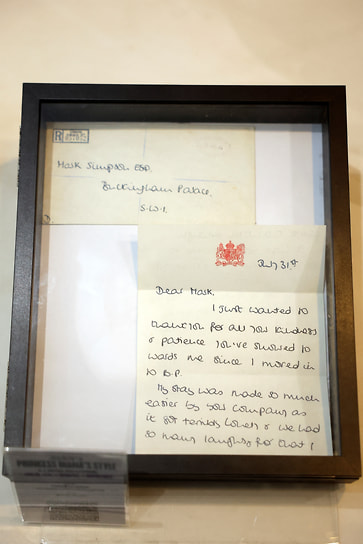 R
Mark Simpson Esq.
Buckingham Palace.
S.W.1.
July 31st
Dear Mark.
I just wanted to
thank you for all your kindness
& patience you've showed to
wards me since I moved in
to B.P.
My stay was made so much
easier by your company as
it got terribly lonely & we had
so many laughs, for that I